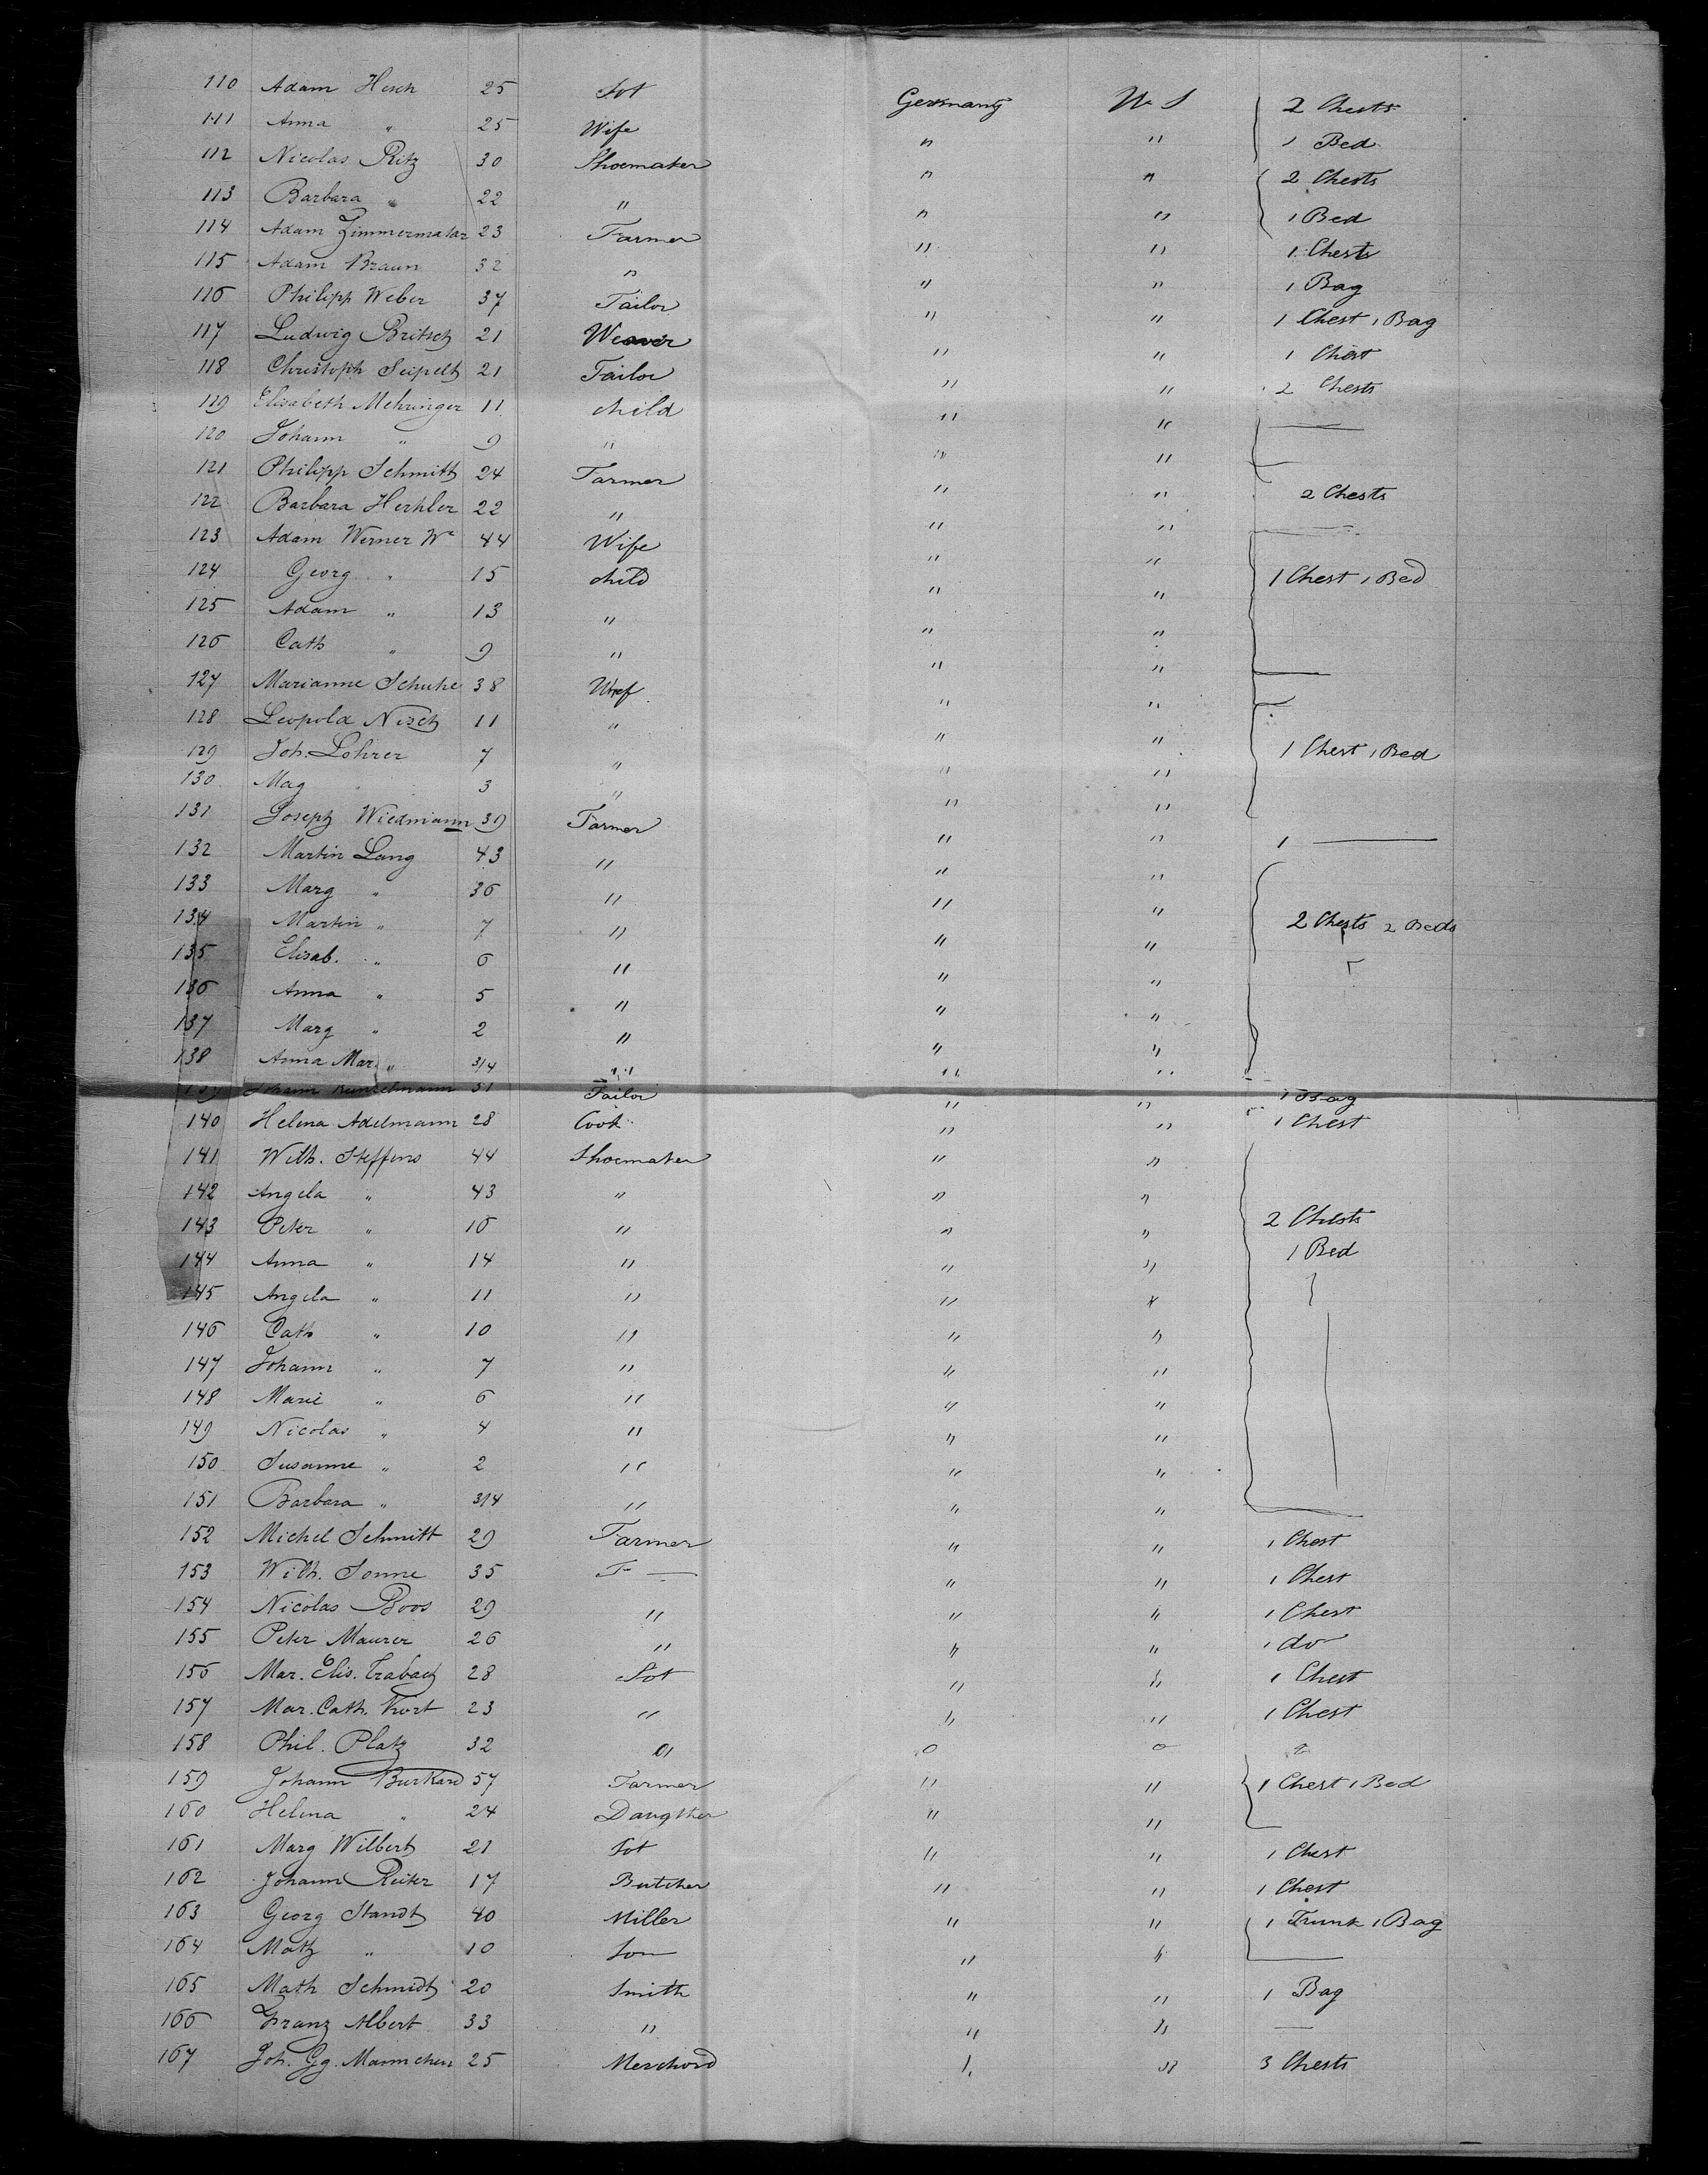 110 Adam Hesch 25 Sot Germany U S 2 Chests
111 Anna " 25 Wife " " 1 Bed
112 Nicolas Ritz 30 Shoemaker " " 2 Chests
113 Barbara " 22 " " " 1 Bed
114 Adam Zimmermatar 23 Farmer " " 1 Chests
115 Adam Braun 32 " " " 1 Bag
116 Philipp Weber 37 Tailor " " 1 Chest 1 Bag
117 Ludwig Britsch 21 Weaver " " 1 Chest
118 Christoph Seipelt 21 Tailor " " 2 Chests
119 Elisabeth Mehringer 11 child " "
120 Johann " 9 " " "
121 Philipp Schmitt 24 Farmer " " 2 Chests
122 Barbara Herhler 22 " " "
123 Adam Werner We 44 Wife " "
124 Georg " 15 child " " 1 Chest 1 Bed
125 Adam " 13 " " "
126 Cath " 9 " " "
127 Marianne Schuhe 38 " "
128 Leopold Nisch 11 " " "
129 Joh. Lohrer 7 " " " 1 Chest 1 Bed
130 Mag 3 " " "
131 Joseph Wiedmann 39 Farmer " " 1 —
132 Martin Lang 43 " " "
133 Marg " 36 " " "
134 Martin " 7 " " " 2 Chests 2 Beds
135 Elisab. " 6 " " "
136 Anna " 5 " " "
137 Marg " 2 " " "
138 Anna Mar. " 3/4 " " "
139 Johann Kunkelmann 31 Tailor " " 1 Bag
140 Helena Adelmann 28 Cook " " 1 Chest
141 Wilh. Steffens 44 Shoemaker " "
142 Angela " 43 " " "
143 Peter " 16 " " " 2 Chests
144 Anna " 14 " " " 1 Bed
145 Angela " 11 " " "
146 Cath " 10 " " "
147 Johann " 7 " " "
148 Marie " 6 " " "
149 Nicolas " 4 " " "
150 Susanne " 2 " " "
151 Barbara " 3/4 " " "
152 Michel Schmitt 29 Farmer " " 1 Chest
153 Wilh. Sonne 35 F — " " 1 Chest
154 Nicolas Boos 29 " " " 1 Chest
155 Peter Maurer 26 " " " 1 do
156 Mar. Elis. Trabach 28 Sot " " 1 Chest
157 Mar. Cath. Kort 23 " " " 1 Chest
158 Phil. Platz 32 " o o
159 Johann Burkard 57 Farmer " " 1 Chest 1 Bed
160 Helena " 24 Daugther " "
161 Marg Wilbert 21 Sot " " 1 Chest
162 Johann Reiter 17 Butcher " " 1 Chest
163 Georg Standt 40 Miller " " 1 Trunk 1 Bag
164 Math " 10 Son " "
165 Math Schmidt 20 Smith " " 1 Bag
166 Franz Albert 33 " " " —
167 Joh. Gg. Mannchen 25 Merchord " " 3 Chests